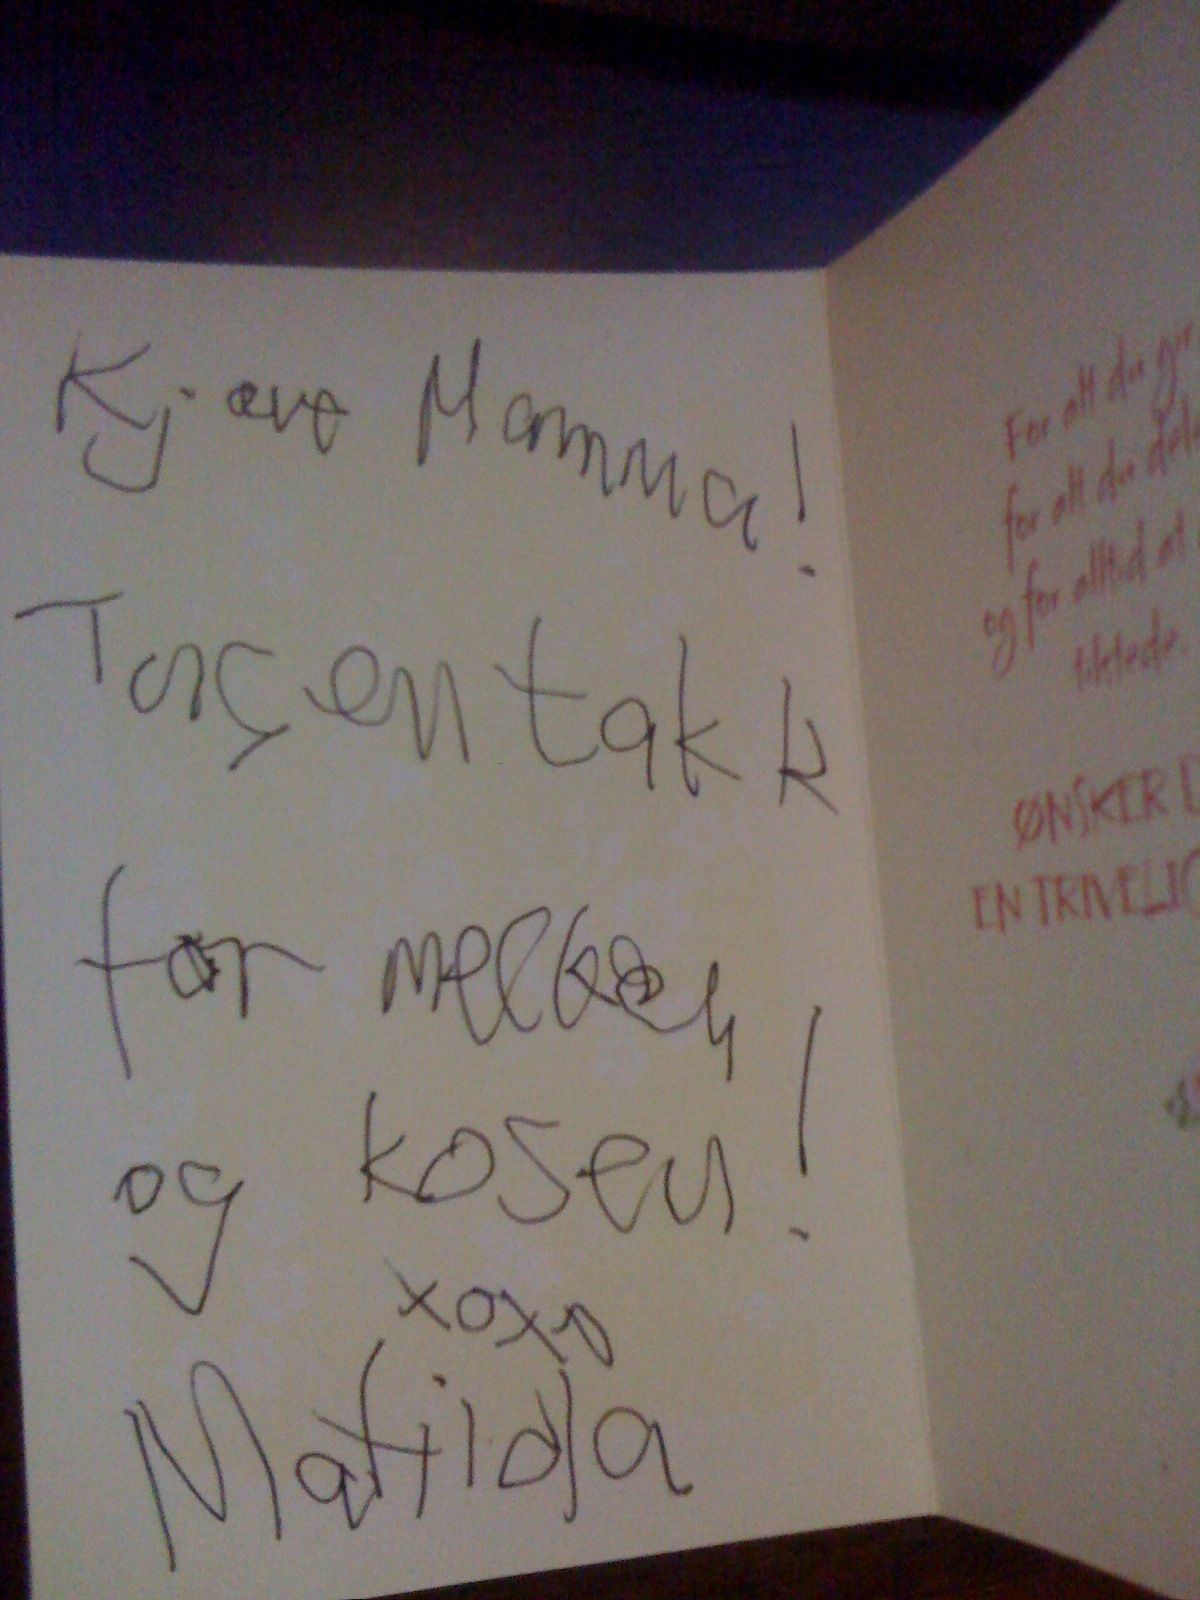 Kjære Mamma!
Tusen takk
for melken
og kosen!
xoxo
Matilda
For alt du gir
for alt du dele
og for alltid at
tilstede.
ØNSKER D
EN TRIVELIG